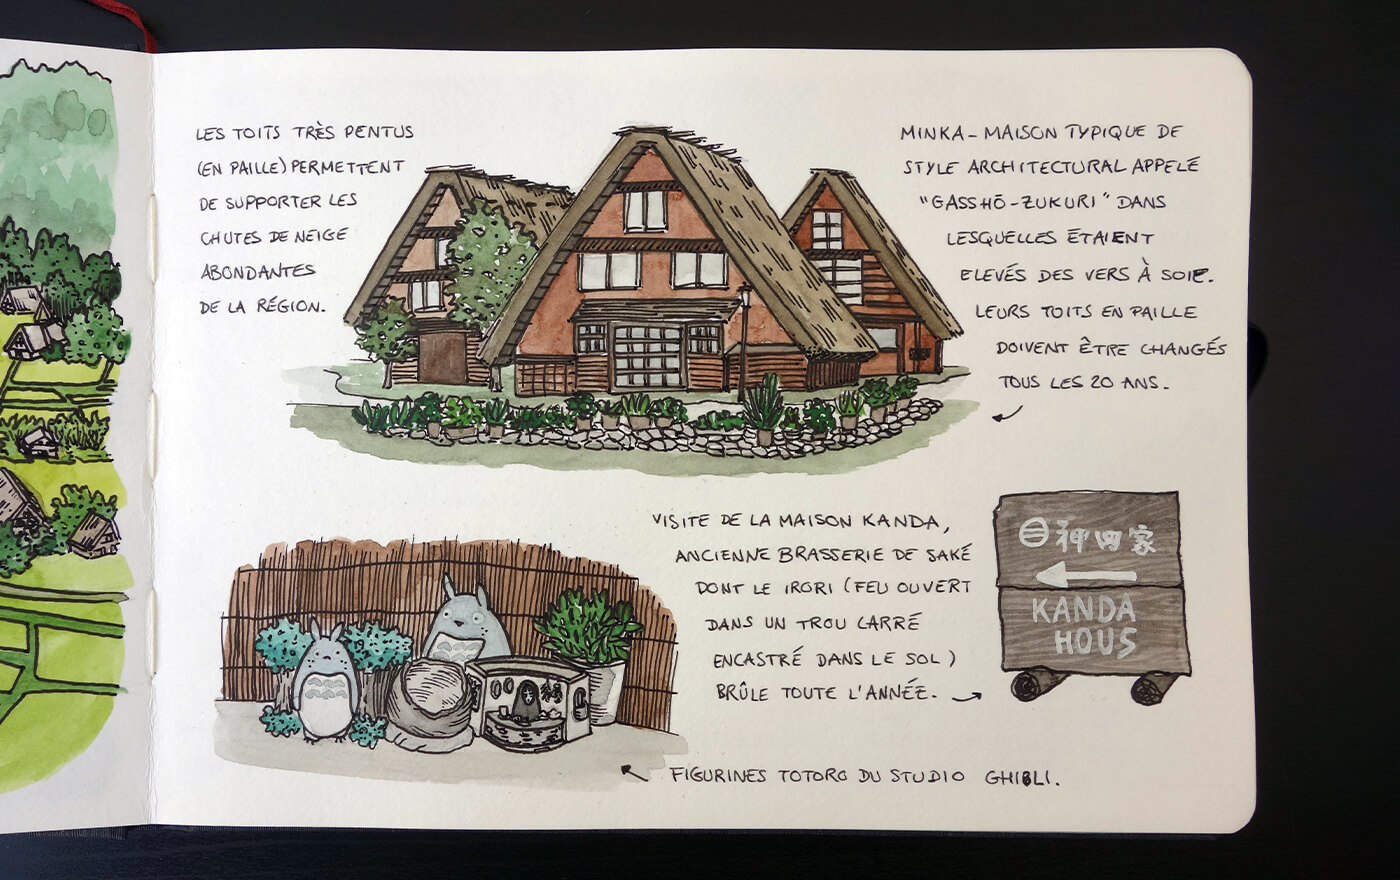 LES TOITS TRÈS PENTUS
(EN PAILLE) PERMETTENT
DE SUPPORTER LES
CHUTES DE NEIGE
ABONDANTES
DE LA RÉGION.
MINKA - MAISON TYPIQUE DE
STYLE ARCHITECTURAL APPELÉ
"GASSHŌ-ZUKURI" DANS
LESQUELLES ÉTAIENT
ELEVÉS DES VERS À SOIE.
LEURS TOITS EN PAILLE
DOIVENT ÊTRE CHANGÉS
TOUS LES 20 ANS.
VISITE DE LA MAISON KANDA,
ANCIENNE BRASSERIE DE SAKÉ
DONT LE IRORI (FEU OUVERT
DANS UN TROU CARRÉ
ENCASTRÉ DANS LE SOL)
BRÛLE TOUTE L'ANNÉE.
神田家
KANDA
HOUS
FIGURINES TOTORO DU STUDIO GHIBLI.